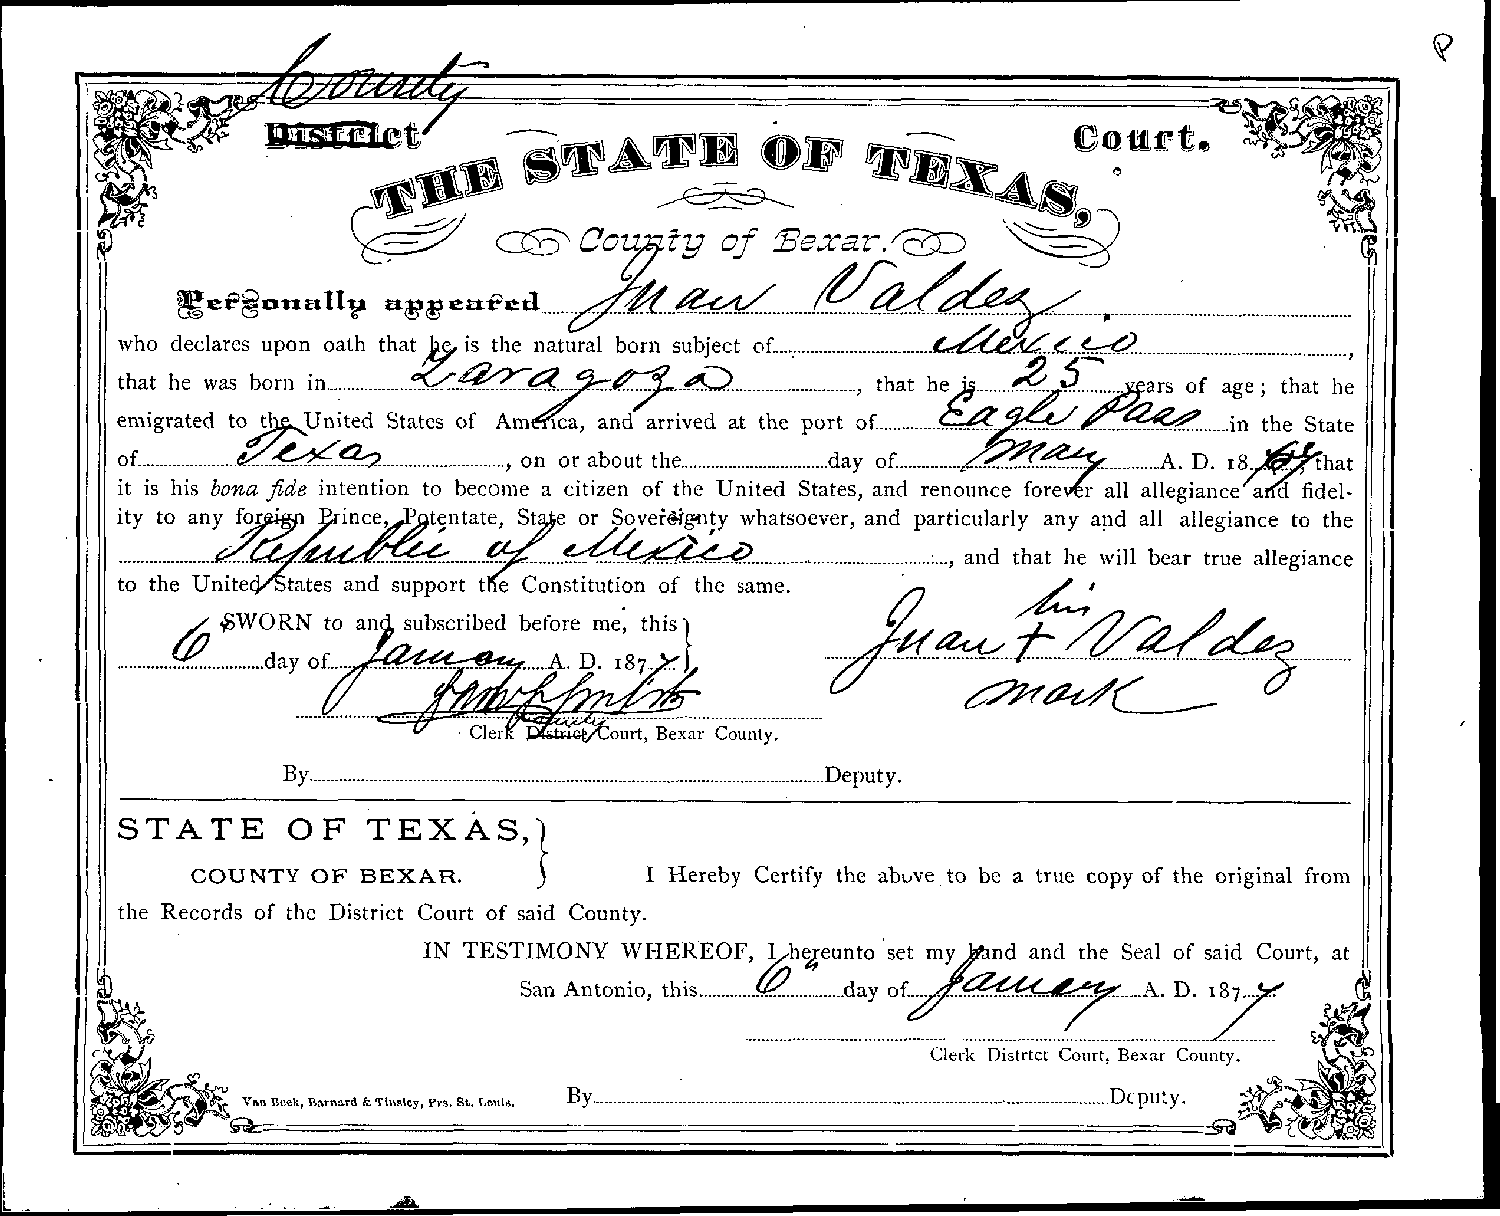 P
County
District Court.
THE STATE OF TEXAS,
County of Bexar.
Personally appeared Juan Valdez
who declares upon oath that he is the natural born subject of Mexico,
that he was born in Zaragoza, that he is 25 years of age; that he
emigrated to the United States of America, and arrived at the port of Eagle Pass in the State
of Texas, on or about the day of May A. D. 18 that
it is his bona fide intention to become a citizen of the United States, and renounce forever all allegiance and fidel-
ity to any foreign Prince, Potentate, State or Sovereignty whatsoever, and particularly any and all allegiance to the
Republic of Mexico, and that he will bear true allegiance
to the United States and support the Constitution of the same.
SWORN to and subscribed before me, this
6 day of January A. D. 1877
his
Juan + Valdez
mark
County
Clerk District Court, Bexar County.
By Deputy.
STATE OF TEXAS,
COUNTY OF BEXAR.
I Hereby Certify the above to be a true copy of the original from
the Records of the District Court of said County.
IN TESTIMONY WHEREOF, I hereunto set my hand and the Seal of said Court, at
San Antonio, this 6" day of January A. D. 1877
Clerk Distrtct Court, Bexar County.
By Deputy.
Van Beek, Barnard & Tinsley, Prs. St. Louis.